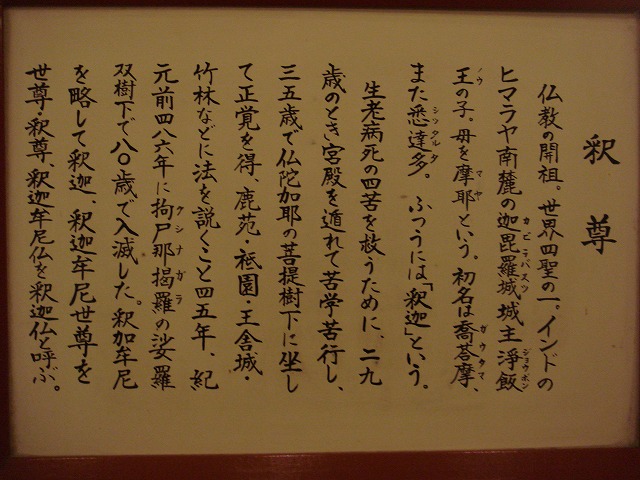 釈尊
仏教の開祖。世界四聖の一。インドの
ヒマラヤ南麓の迦毘羅城城主浄飯
カピラバスツ
ジョウボン
王の子。母を摩耶という。初名は喬荅摩、
ノウ
マヤ
ガウタマ
また悉達多。ふつうには「釈迦」という。
シツタルタ
生老病死の四苦を救うために、二九
歳のとき宮殿を遁れて苦学苦行し、
三五歳で仏陀加耶の菩提樹下に坐し
て正覚を得、鹿苑・祇園・王舎城・
竹林などに法を説くこと四五年、紀
元前四八六年に拘尸那掲羅の娑羅
クシナガラ
双樹下で八〇歳で入滅した。釈加牟尼
を略して釈迦、釈迦牟尼世尊を
世尊・釈尊、釈迦牟尼仏を釈迦仏と呼ぶ。